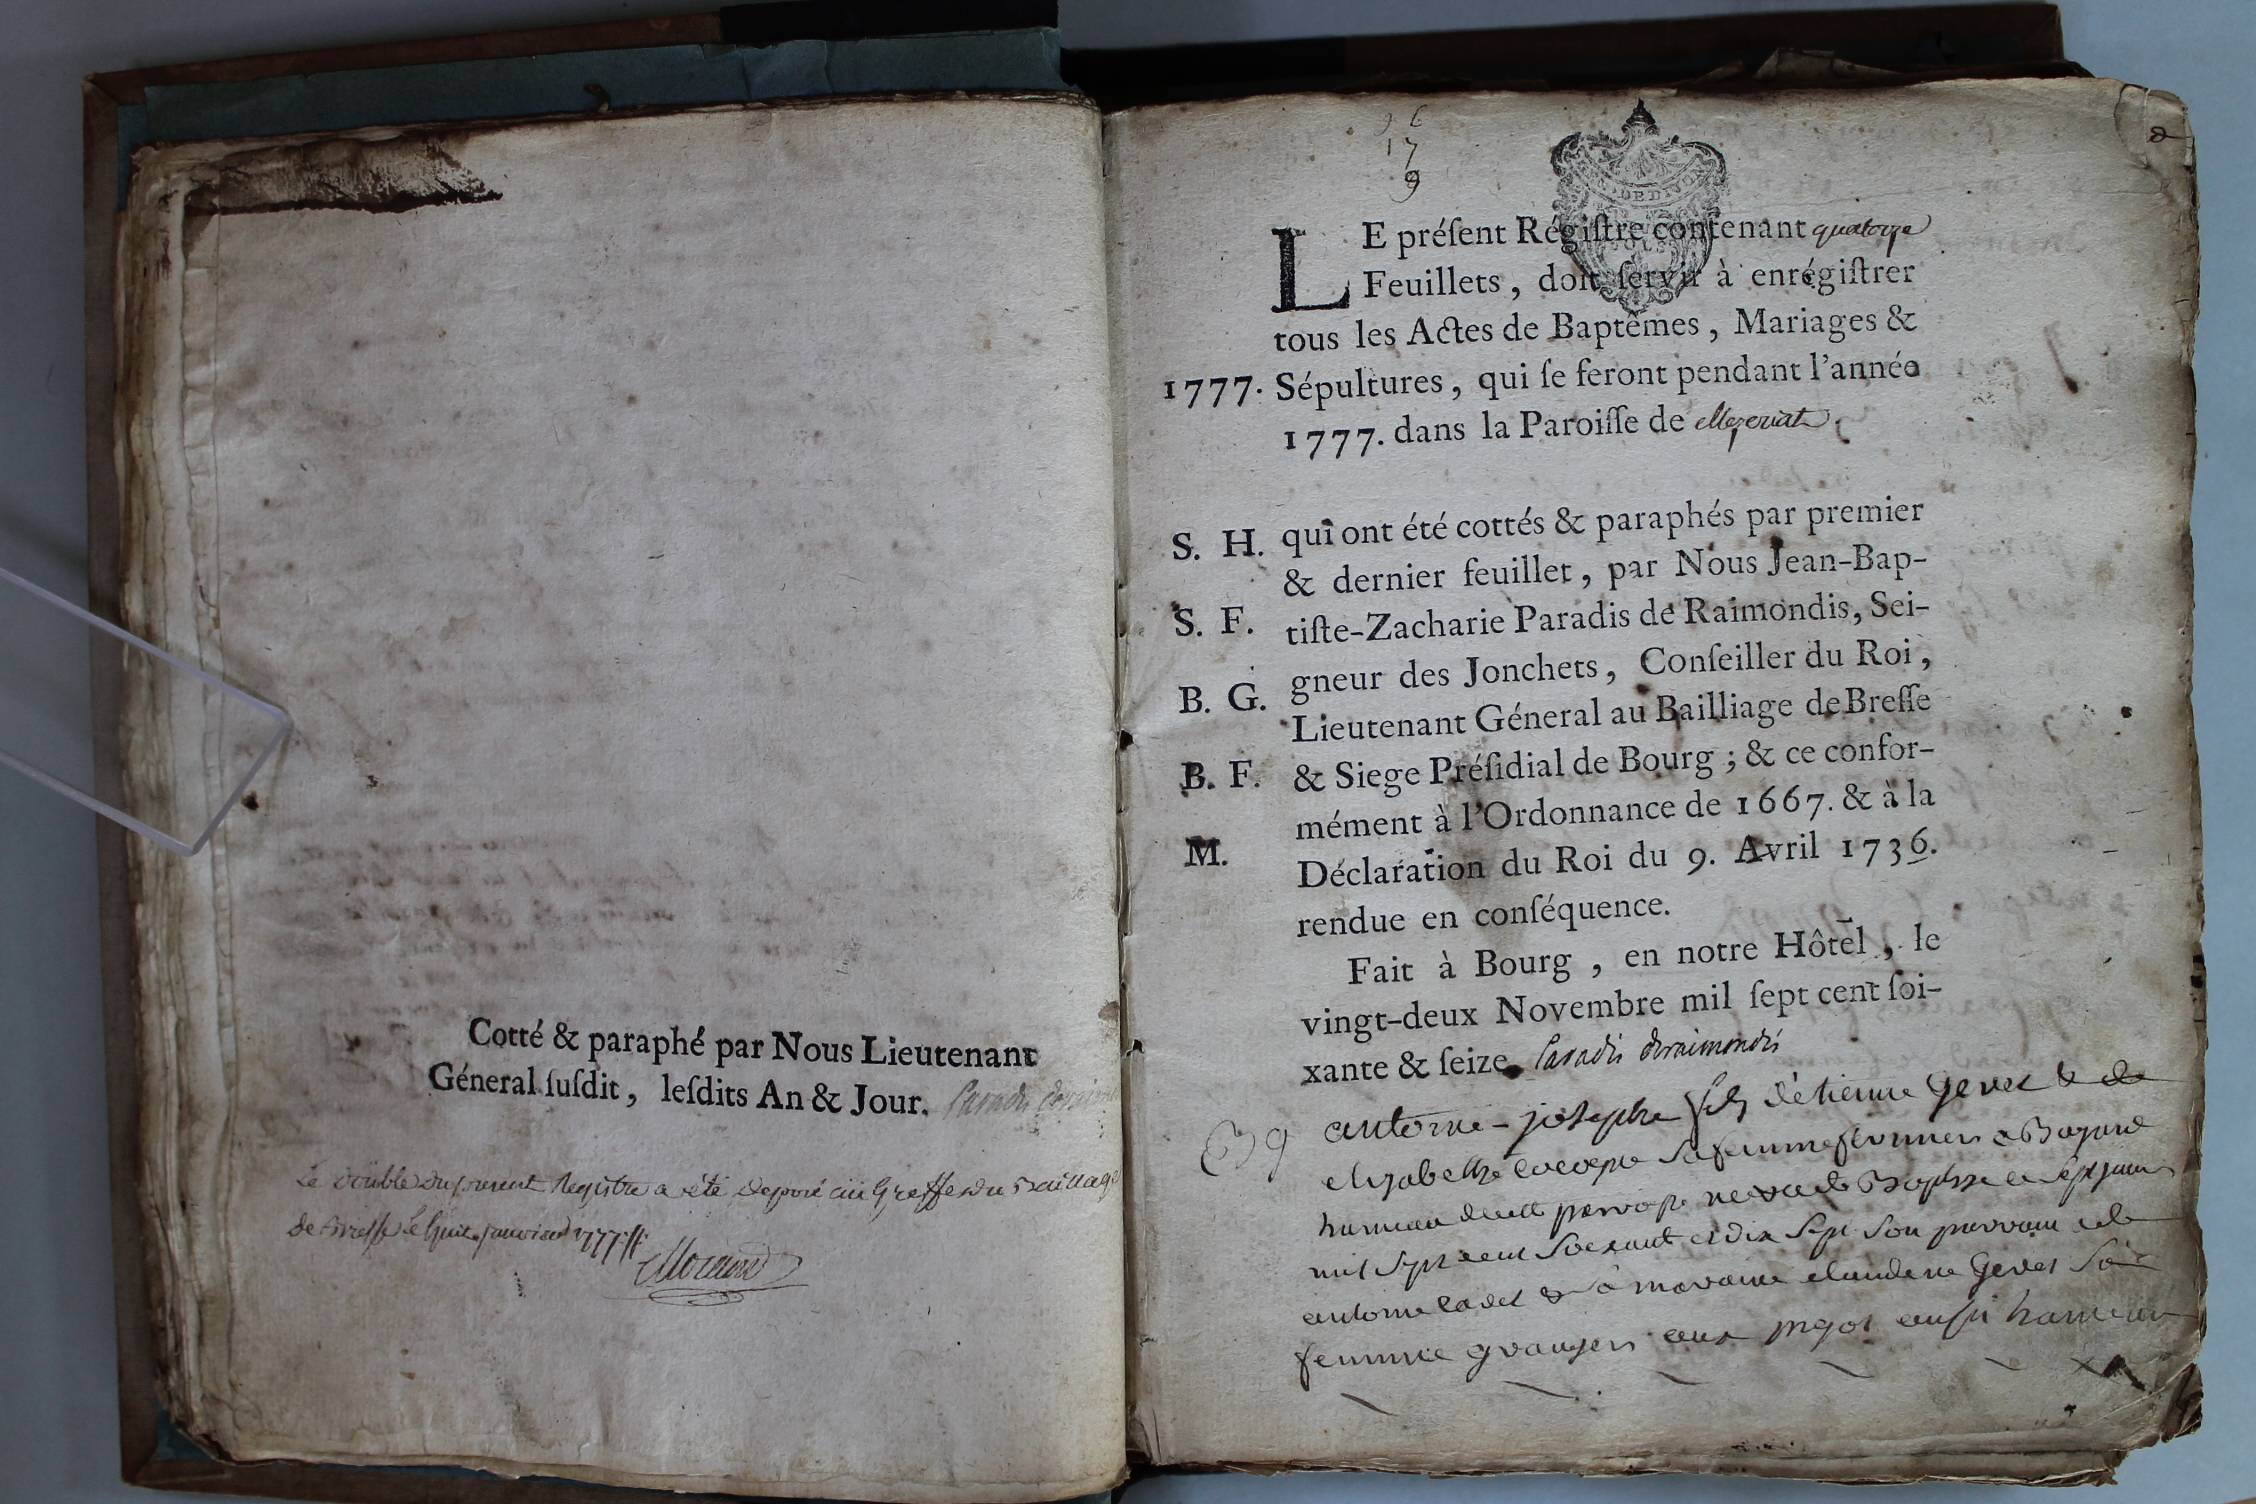 Cotté & paraphé par Nous Lieutenant
Géneral ſuſdit, leſdits An & Jour. Paradis
Le double du present Registre a été deposé au Greffe du Bailliage
de Bresse le huit janvier 1777
Morand
17
9
LE préſent Régiſtre contenant quatorze
Feuillets, doit ſervir à enrégiſtrer
tous les Actes de Baptêmes, Mariages &
1777. Sépultures, qui ſe feront pendant l'année
1777. dans la Paroiſſe de Mezeriat
S. H. qui ont été cottés & paraphés par premier
& dernier feuillet, par Nous Jean-Bap-
S. F. tiſte-Zacharie Paradis de Raimondis, Sei-
gneur des Jonchets, Conſeiller du Roi,
B. G. Lieutenant Géneral au Bailliage de Breſſe
B. F. & Siege Préſidial de Bourg ; & ce confor-
mément à l'Ordonnance de 1667. & à la
M. Déclaration du Roi du 9. Avril 1736.
rendue en conſéquence.
Fait à Bourg, en notre Hôtel, le
vingt-deux Novembre mil ſept cent ſoi-
xante & ſeize. Paradis deraimondis
B g antoine-josephe fils d'étienne Gevet & de
elizabethe sa femme
hameau
mil sept cent soixante et dix sept son parrain
antoine cadet & sa marraine claudine Gevet sa
femme grangers aux aussi hameau